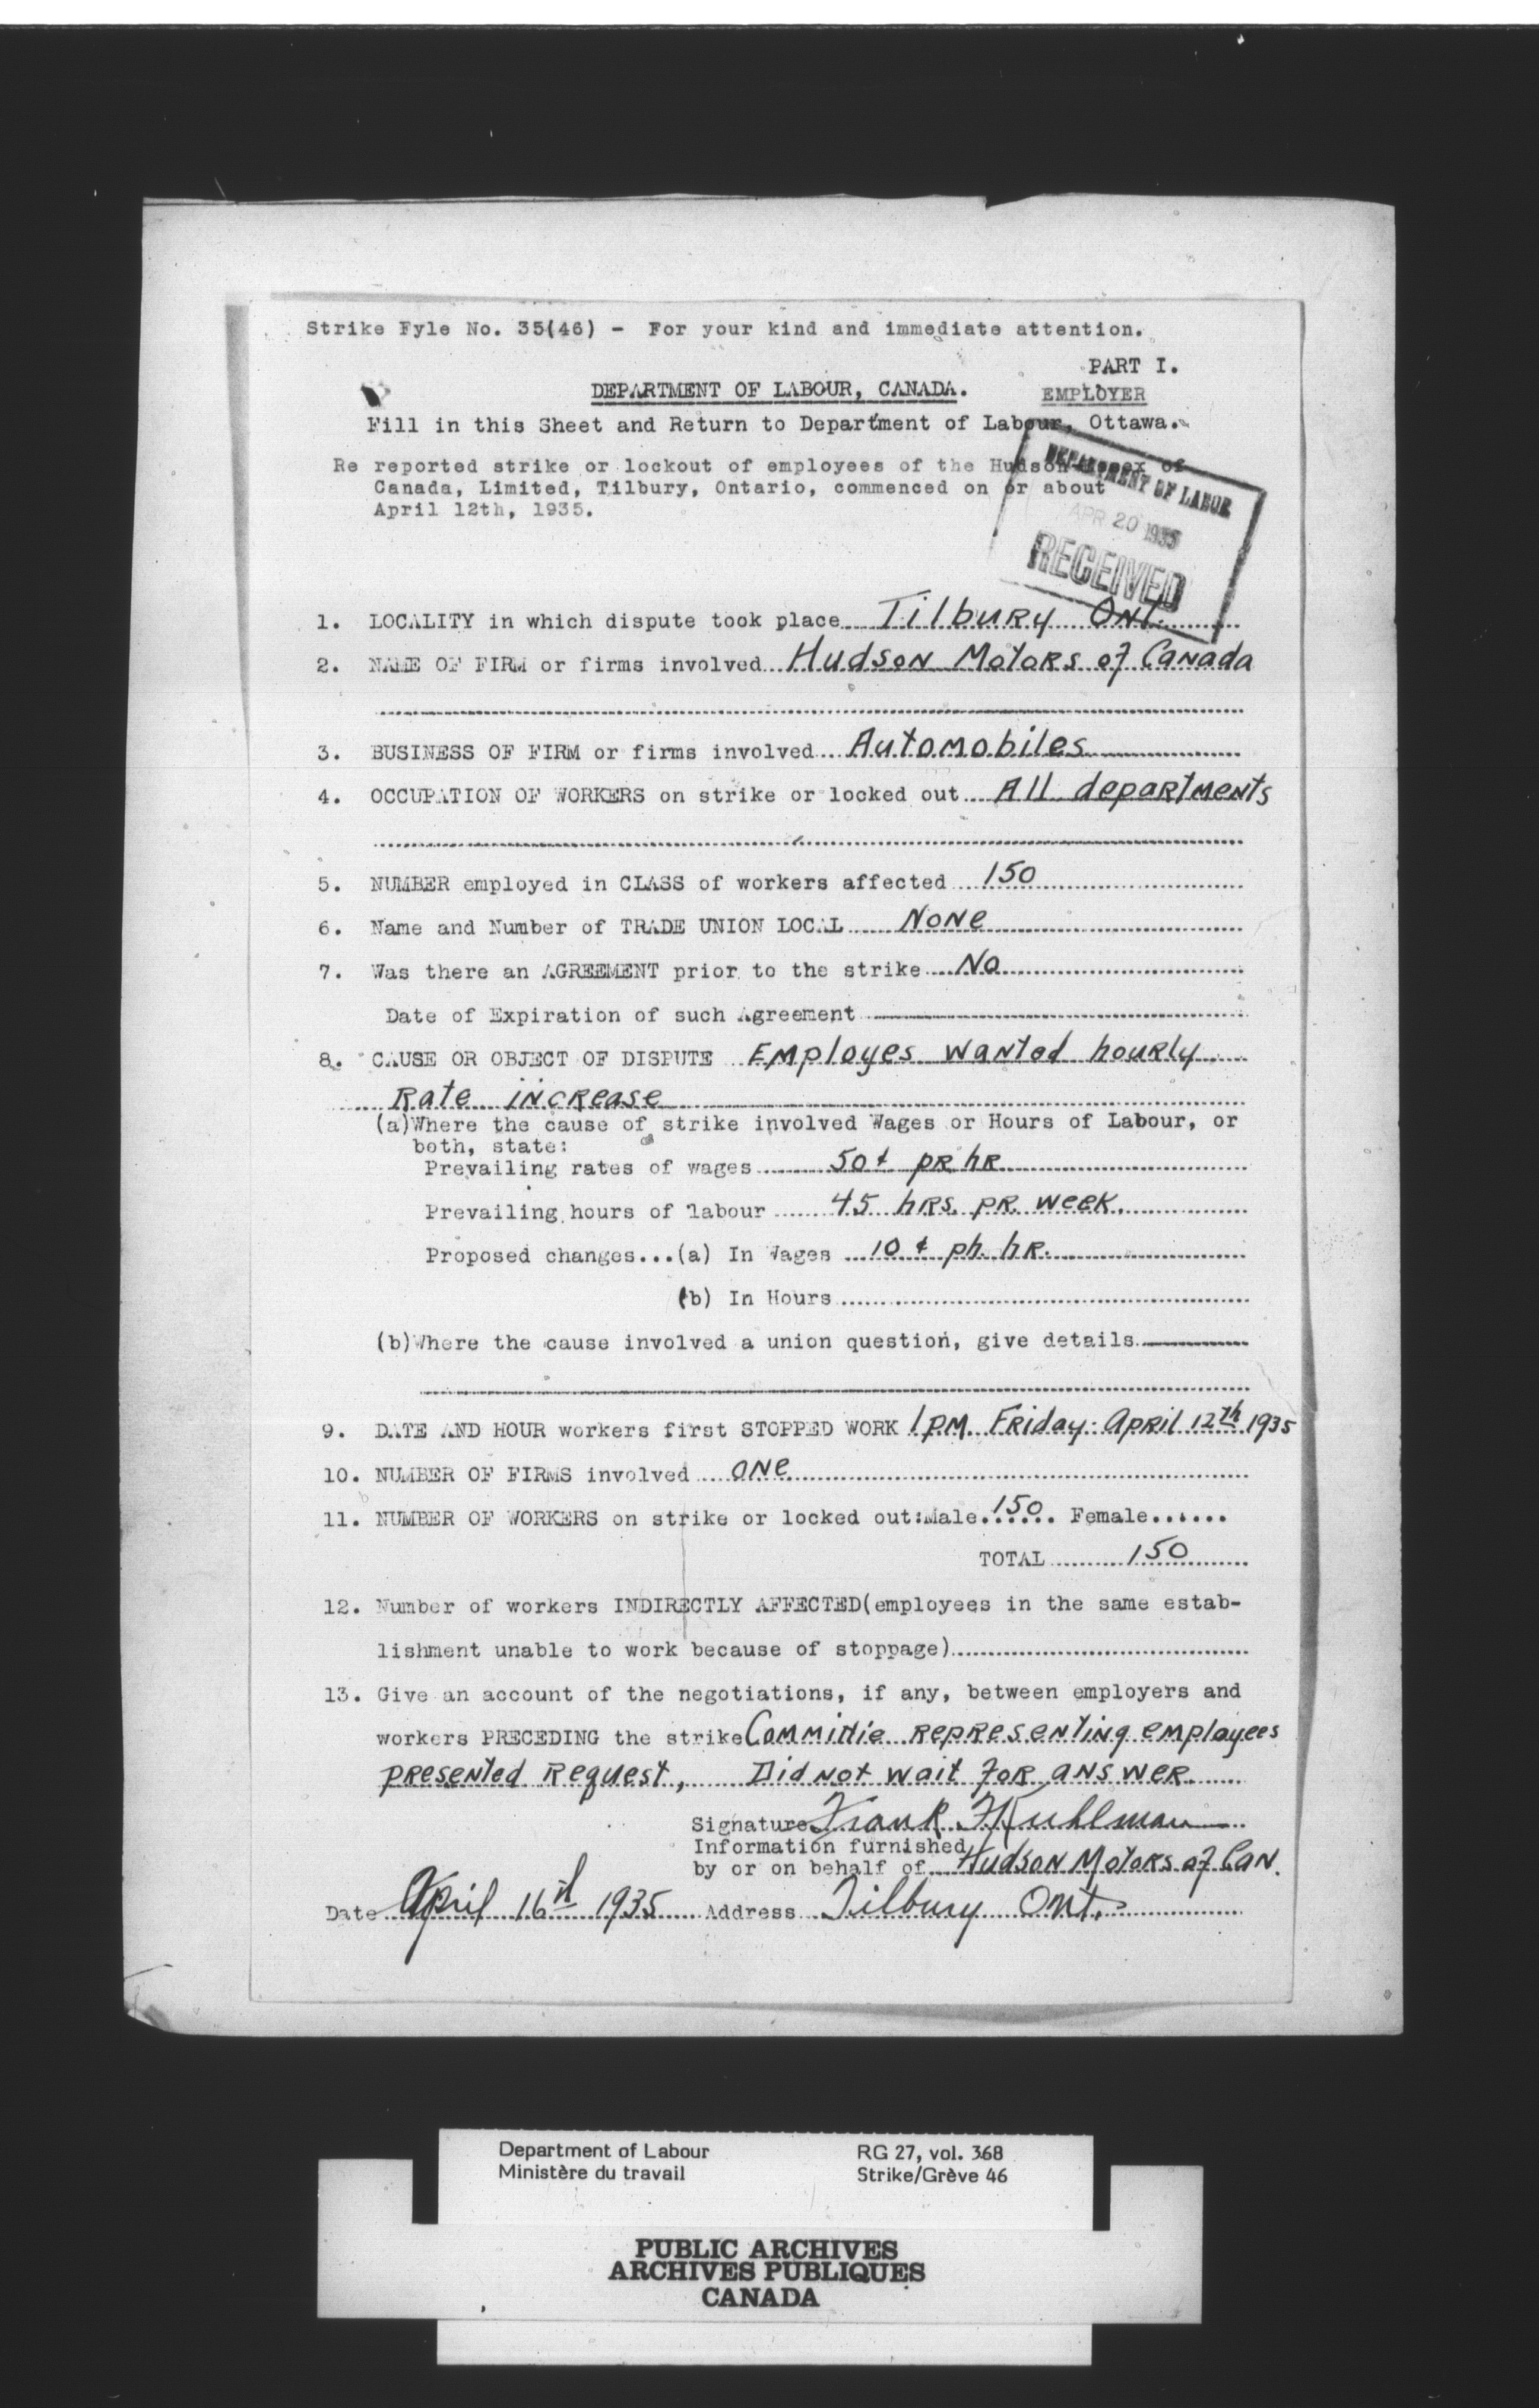 Strike Fyle No. 35(46) - For your kind and immediate attention.
PART I.
DEPARTMENT OF LABOUR, CANADA. EMPLOYER
Fill in this Sheet and Return to Department of Labour, Ottawa.
Re reported strike or lockout of employees of the Hudson-Essex of
Canada, Limited, Tilbury, Ontario, commenced on or about
April 12th, 1935.
DEPARTMENT OF LABOR
APR 20 1935
RECEIVED
1. LOCALITY in which dispute took place Tilbury Ont.
2. NAME OF FIRM or firms involved Hudson Motors of Canada
3. BUSINESS OF FIRM or firms involved Automobiles
4. OCCUPATION OF WORKERS on strike or locked out All departments
5. NUMBER employed in CLASS of workers affected 150
6. Name and Number of TRADE UNION LOCAL None
7. Was there an AGREEMENT prior to the strike No
Date of Expiration of such Agreement
8. CAUSE OR OBJECT OF DISPUTE Employes wanted hourly
Rate increase
(a)Where the cause of strike involved Wages or Hours of Labour, or
both, state:
Prevailing rates of wages 50¢ pr hr
Prevailing hours of labour 45 hrs. pr. week.
Proposed changes...(a) In Wages 10¢ ph. hr.
(b) In Hours
(b)Where the cause involved a union question, give details
9. DATE AND HOUR workers first STOPPED WORK 1 PM. Friday. April 12th 1935
10. NUMBER OF FIRMS involved one
11. NUMBER OF WORKERS on strike or locked out:Male 150 Female......
TOTAL 150
12. Number of workers INDIRECTLY AFFECTED(employees in the same estab-
lishment unable to work because of stoppage)
13. Give an account of the negotiations, if any, between employers and
workers PRECEDING the strike Committie representing employees
presented Request, Did not wait for answer
Signature Frank Kuhlman
Information furnished
by or on behalf of Hudson Motors of Can.
Date April 16th 1935 Address Tilbury Ont.
Department of Labour RG 27, vol. 368
Ministère du travail Strike/Grève 46
PUBLIC ARCHIVES
ARCHIVES PUBLIQUES
CANADA